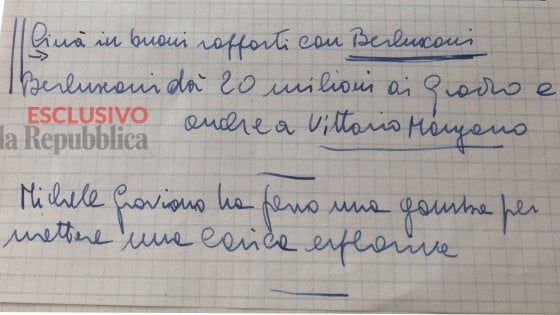 Cinà in buoni rapporti con Berlusconi
Berlusconi dà 20 milioni ai Grado e
anche a Vittorio Mangano
ESCLUSIVO
la Repubblica
Michele Graviano ha perso una gamba per
mettere una carica esplosiva